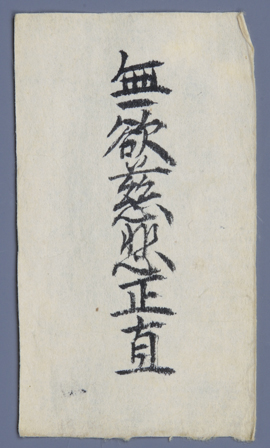 無欲慈悲正直